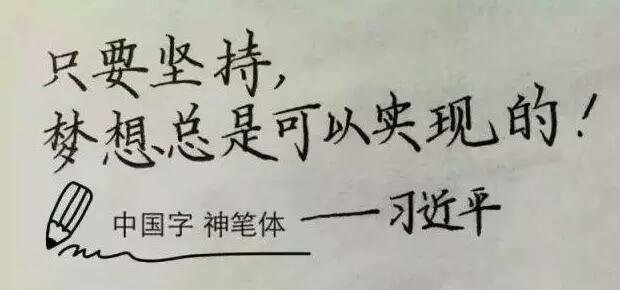 只要坚持，
梦想总是可以实现的！
中国字 神笔体 ——习近平